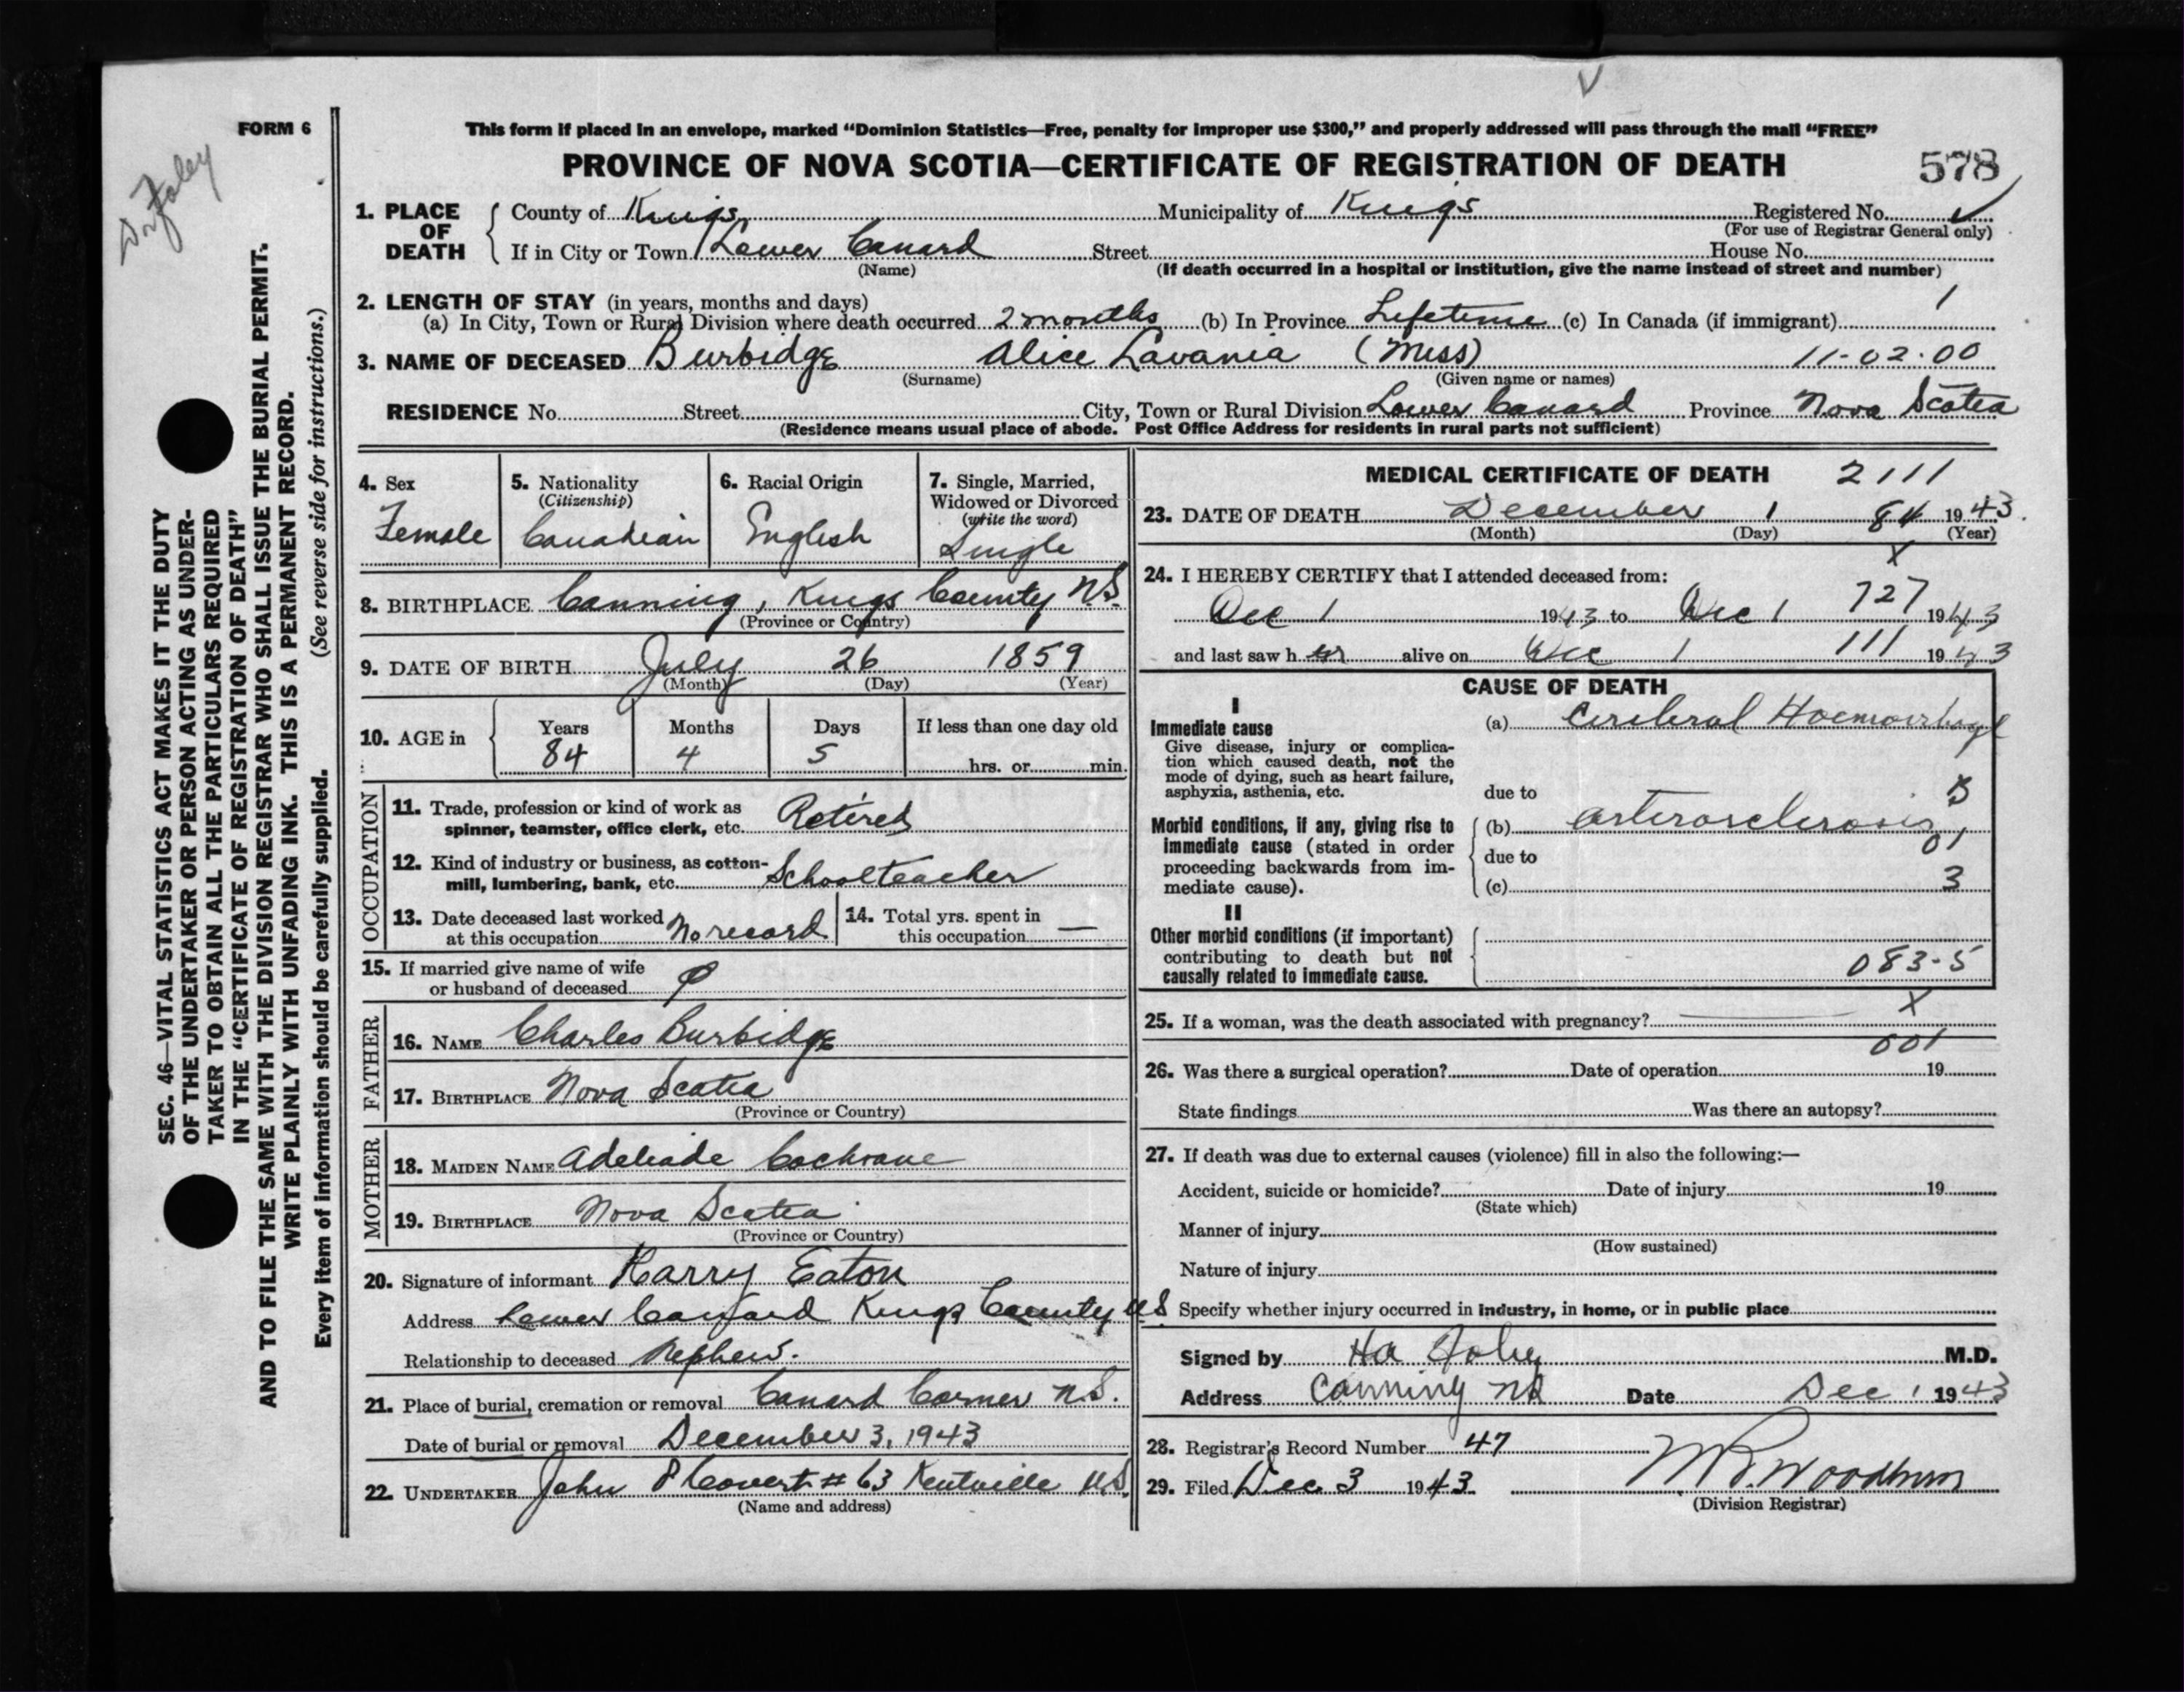 V
FORM 6
Dr Foley
This form if placed in an envelope, marked “Dominion Statistics—Free, penalty for improper use $300,” and properly addressed will pass through the mail “FREE”
PROVINCE OF NOVA SCOTIA—CERTIFICATE OF REGISTRATION OF DEATH 578
1. PLACE OF DEATH
County of Kings Municipality of Kings Registered No. ✓
(For use of Registrar General only)
If in City or Town Lower Canard Street House No.
(Name) (If death occurred in a hospital or institution, give the name instead of street and number)
2. LENGTH OF STAY (in years, months and days) 1
(a) In City, Town or Rural Division where death occurred 2 months (b) In Province Lifetime (c) In Canada (if immigrant)
3. NAME OF DECEASED Burbidge Alice Lavania (Miss) 11-02-00
(Surname) (Given name or names)
RESIDENCE No. Street City, Town or Rural Division Lower Canard Province Nova Scotia
(Residence means usual place of abode. Post Office Address for residents in rural parts not sufficient)
4. Sex
Female
5. Nationality
(Citizenship)
Canadian
6. Racial Origin
English
7. Single, Married,
Widowed or Divorced
(write the word)
Single
8. BIRTHPLACE Canning, Kings County N.S.
(Province or Country)
9. DATE OF BIRTH July 26 1859
(Month) (Day) (Year)
10. AGE in
Years Months Days If less than one day old
84 4 5 hrs. or min.
OCCUPATION
11. Trade, profession or kind of work as
spinner, teamster, office clerk, etc. Retired
12. Kind of industry or business, as cotton-
mill, lumbering, bank, etc. Schoolteacher
13. Date deceased last worked
at this occupation No record
14. Total yrs. spent in
this occupation —
15. If married give name of wife
or husband of deceased
FATHER
16. NAME Charles Burbidge
17. BIRTHPLACE Nova Scotia
(Province or Country)
MOTHER
18. MAIDEN NAME Adeliade Cochrane
19. BIRTHPLACE Nova Scotia
(Province or Country)
20. Signature of informant Harry Eaton
Address Lower Canard Kings County N.S
Relationship to deceased Nephew.
21. Place of burial, cremation or removal Canard Corner N.S.
Date of burial or removal December 3, 1943
22. UNDERTAKER John P Covert # 63 Kentville N.S.
(Name and address)
MEDICAL CERTIFICATE OF DEATH 2111
23. DATE OF DEATH December 1 84 1943.
(Month) (Day) (Year)
X
24. I HEREBY CERTIFY that I attended deceased from:
727
Dec 1 1943 to Dec 1 1943
and last saw h er alive on Dec 1 111 1943
CAUSE OF DEATH
I
Immediate cause
Give disease, injury or complica-
tion which caused death, not the
mode of dying, such as heart failure,
asphyxia, asthenia, etc.
(a) Cerebral Haemorrhage
due to
Morbid conditions, if any, giving rise to
immediate cause (stated in order
proceeding backwards from im-
mediate cause).
(b) arterosclerosis
01
due to
(c) 3
II
Other morbid conditions (if important)
contributing to death but not
causally related to immediate cause.
083-5
X
25. If a woman, was the death associated with pregnancy?
001
26. Was there a surgical operation? Date of operation 19
State findings Was there an autopsy?
27. If death was due to external causes (violence) fill in also the following:—
Accident, suicide or homicide? Date of injury 19
(State which)
Manner of injury
(How sustained)
Nature of injury
Specify whether injury occurred in industry, in home, or in public place
Signed by Ha Foley M.D.
Address Canning NS Date Dec 1 1943
28. Registrar's Record Number 47
29. Filed Dec 3 1943. Woodburn
(Division Registrar)
SEC. 46—VITAL STATISTICS ACT MAKES IT THE DUTY
OF THE UNDERTAKER OR PERSON ACTING AS UNDER-
TAKER TO OBTAIN ALL THE PARTICULARS REQUIRED
IN THE “CERTIFICATE OF REGISTRATION OF DEATH”
AND TO FILE THE SAME WITH THE DIVISION REGISTRAR WHO SHALL ISSUE THE BURIAL PERMIT.
WRITE PLAINLY WITH UNFADING INK. THIS IS A PERMANENT RECORD.
Every item of information should be carefully supplied. (See reverse side for instructions.)